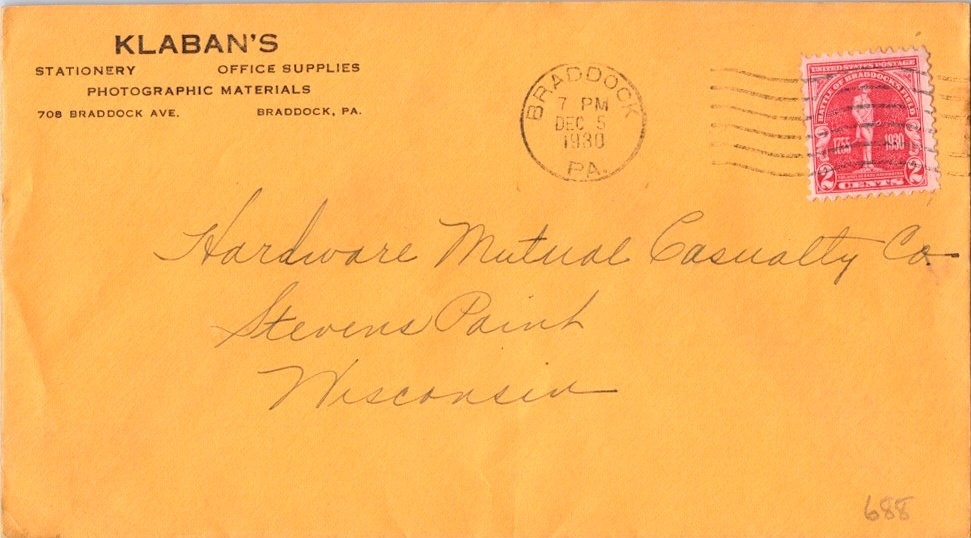 KLABAN'S
STATIONERY OFFICE SUPPLIES
PHOTOGRAPHIC MATERIALS
708 BRADDOCK AVE. BRADDOCK, PA.
BRADDOCK
7 PM
DEC 5
1930
PA.
UNITED STATES POSTAGE
BATTLE OF BRADDOCK'S FIELD
1755 1930
2 2
CENTS
Hardware Mutual Casualty Co
Stevens Point
Wisconsin
688